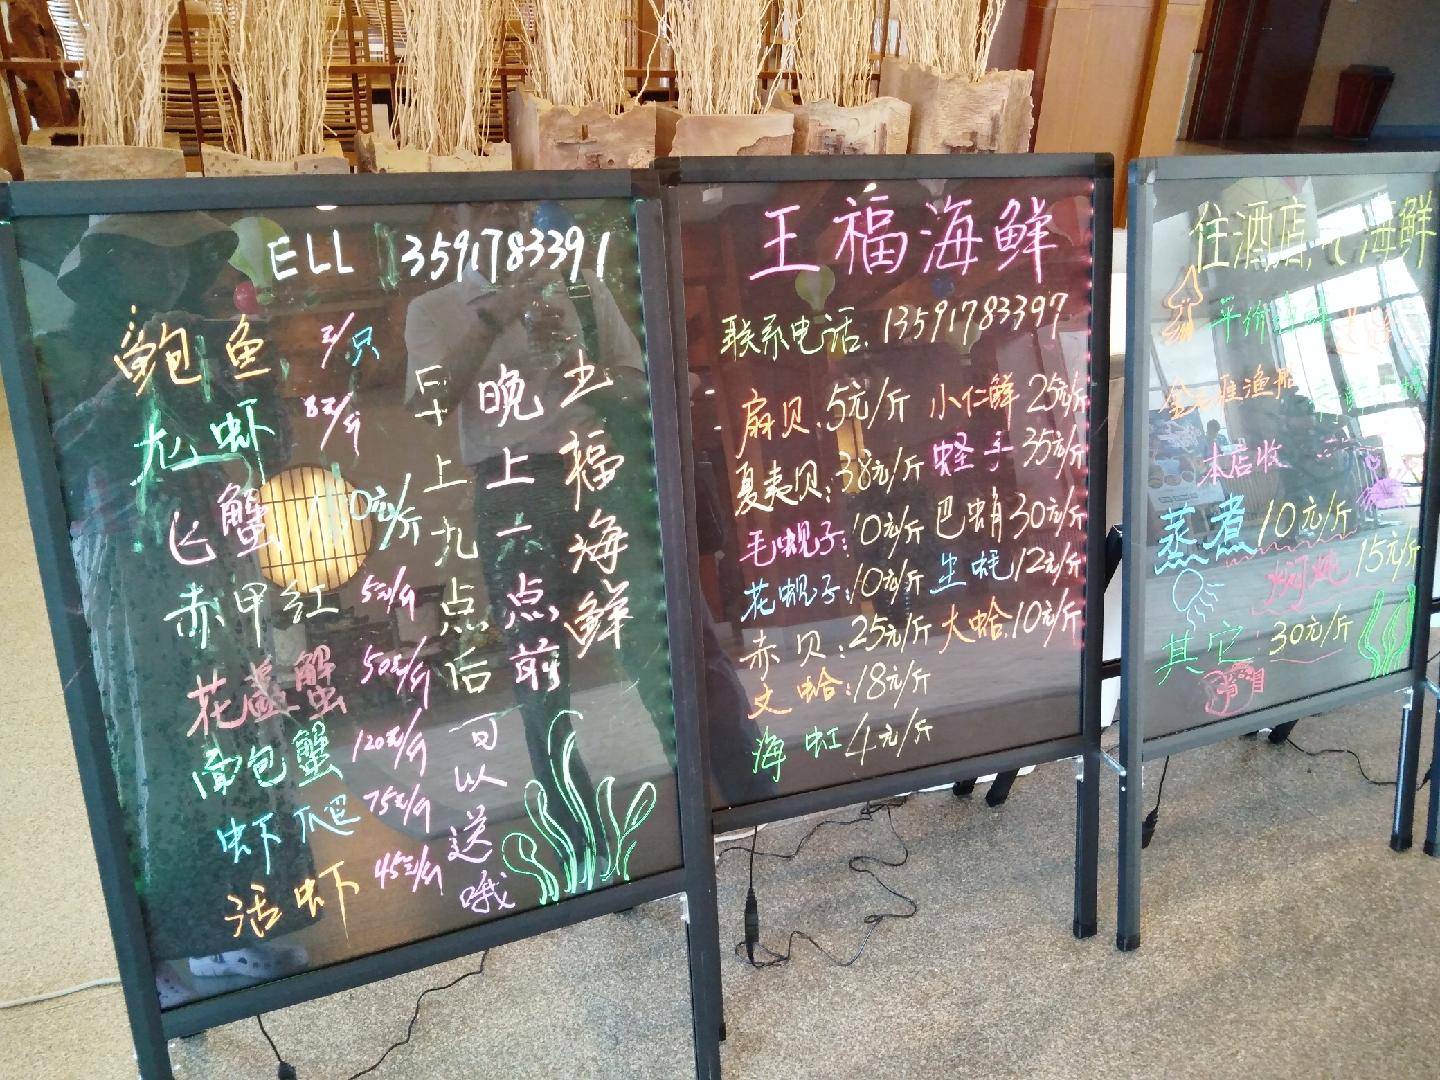 ELL 13591783391
鲍鱼 /只
龙虾 /斤
飞蟹 110元/斤
赤甲红 50元/斤
花盖蟹 50元/斤
面包蟹 120元/斤
虾爬 75元/斤
活虾 45元/斤
王福海鲜
晚上一点前
早上九点后
可以送哦
王福海鲜
联系电话：13591783397
扇贝：5元/斤 小仁鲜 25元/斤
夏夷贝：38元/斤 蛏手 35元/斤
毛蚬子：10元/斤 巴蛸 30元/斤
花蚬子：10元/斤 生蚝 12元/斤
赤贝：25元/斤 大蛤：10元/斤
文蛤：18元/斤
海虹 4元/斤
住酒店 海鲜
平价海鲜
渔船
本店收
蒸煮 10元/斤
15元/斤
其它：30元/斤